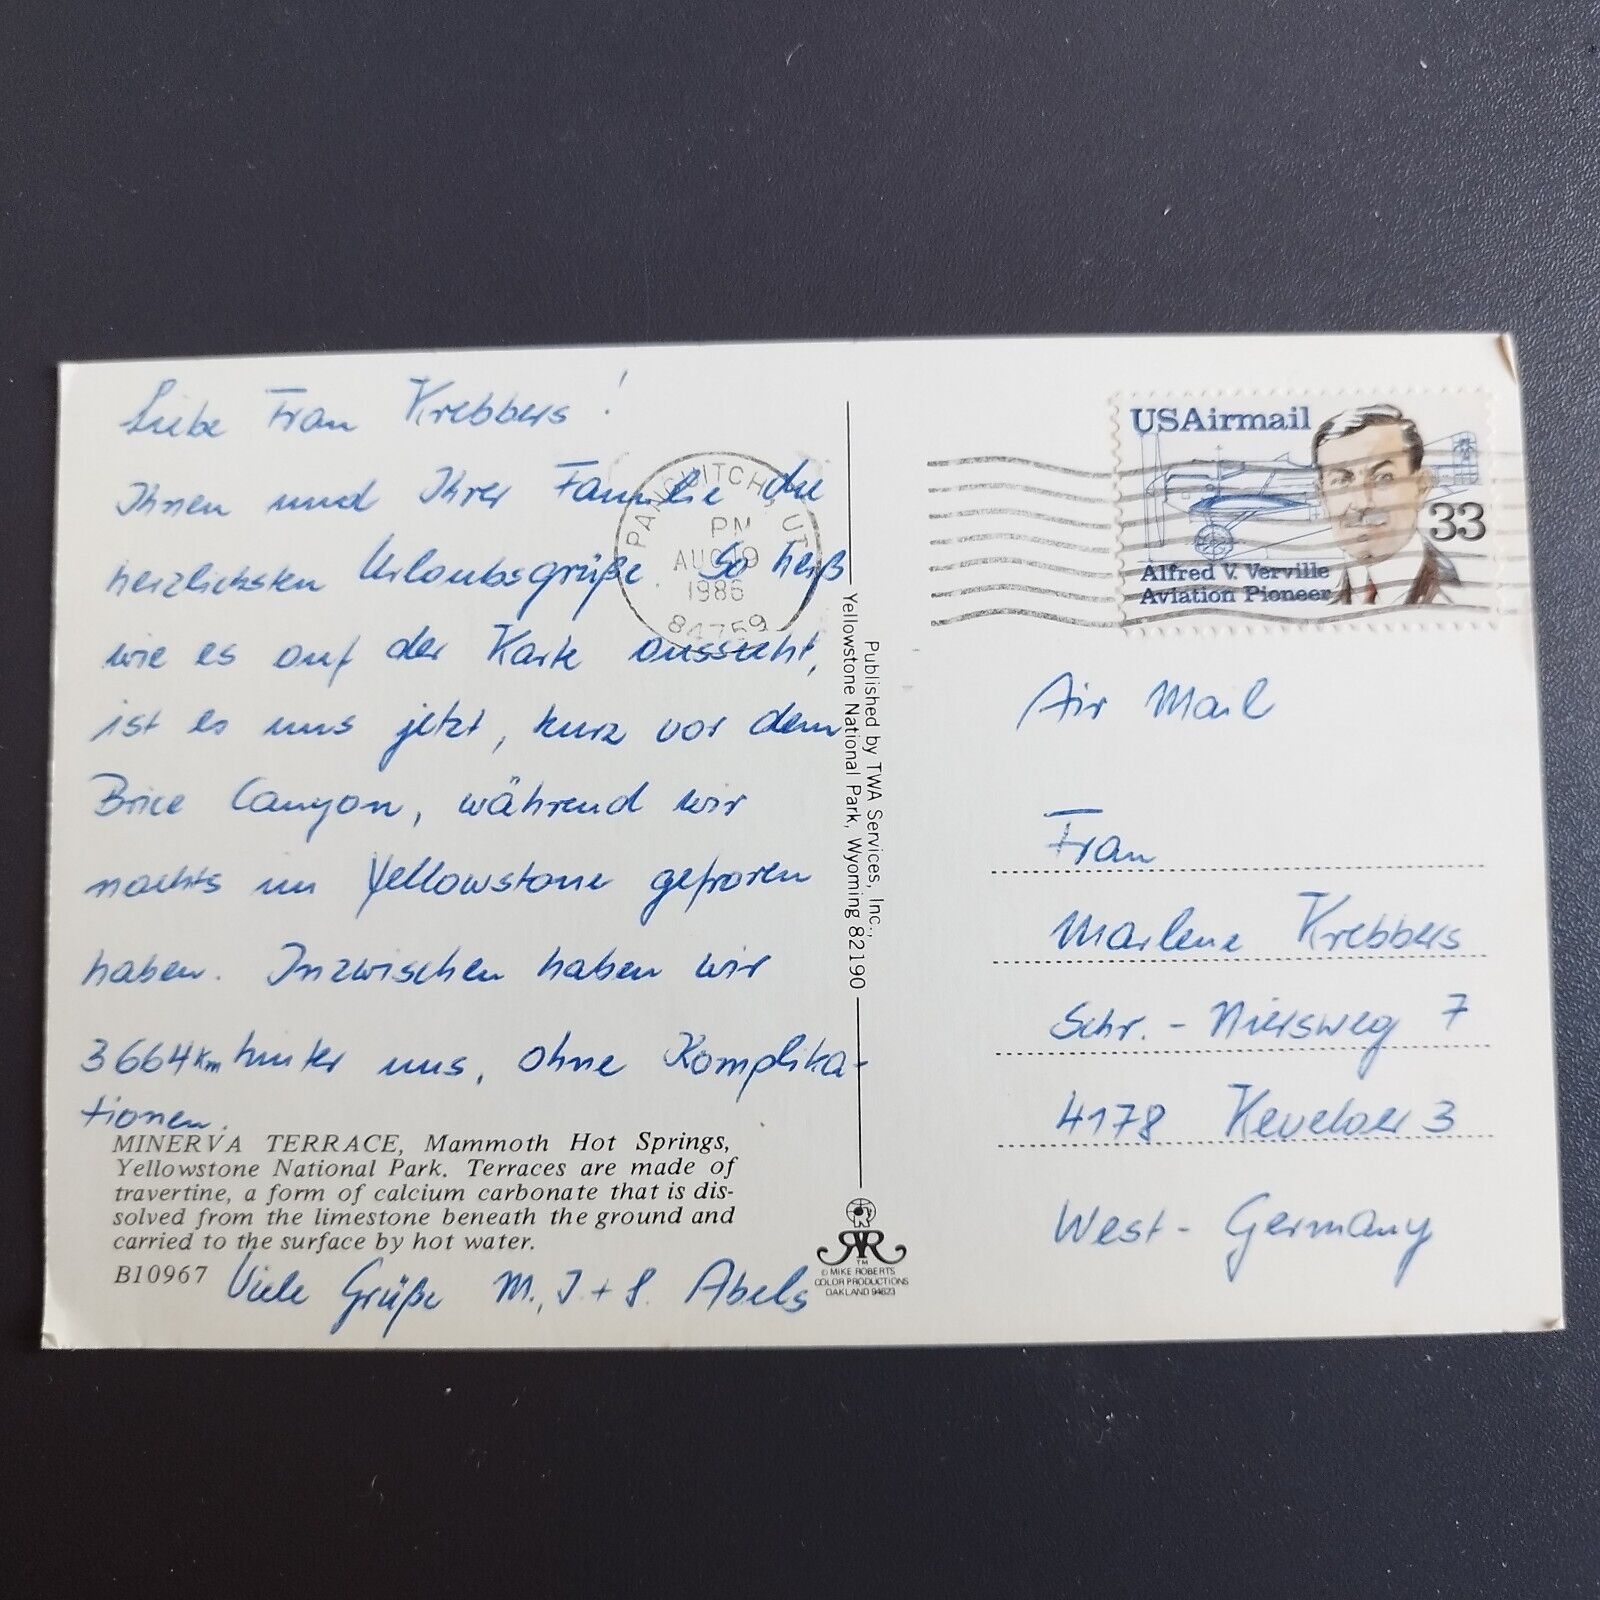 Liebe Frau Krebbers!
Ihnen und Ihrer Familie die
herzlichsten Urlaubsgrüße. So heiß
wie es auf der Karte aussieht,
ist es uns jetzt, kurz vor dem
Brice Canyon, während wir
nachts im Yellowstone gefroren
haben. Inzwischen haben wir
3664 km hinter uns, ohne Komplika-
tionen.
MINERVA TERRACE, Mammoth Hot Springs,
Yellowstone National Park. Terraces are made of
travertine, a form of calcium carbonate that is dis-
solved from the limestone beneath the ground and
carried to the surface by hot water.
B10967
Viele Grüße M., J. + S. Abels
PANGUITCH, UT
PM
AUG 19
1986
84759
Published by TWA Services, Inc.,
Yellowstone National Park, Wyoming 82190
TM
© MIKE ROBERTS
COLOR PRODUCTIONS
OAKLAND 94623
USAirmail
33
Alfred V. Verville
Aviation Pioneer
Air Mail
Frau
Marlene Krebbers
Schr.-Niersweg 7
4178 Kevelaer 3
West-Germany